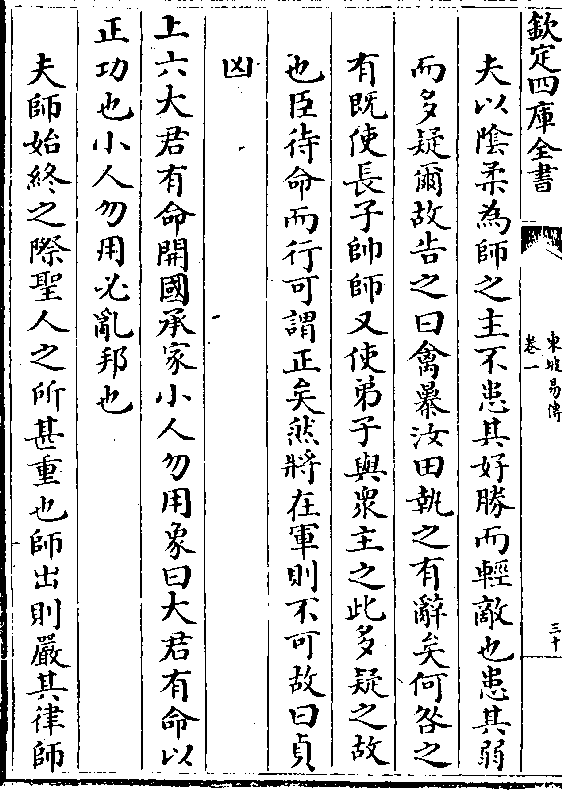 欽定四庫全書
東坡易傳
卷一
三十
夫以陰柔為師之主不患其好勝而輕敵也患其弱
而多疑爾故告之曰禽暴汝田執之有辭矣何咎之
有既使長子帥師又使弟子與衆主之此多疑之故
也臣待命而行可謂正矣然將在軍則不可故曰貞
凶
上六大君有命開國承家小人勿用象曰大君有命以
正功也小人勿用必亂邦也
夫師始終之際聖人之所甚重也師出則嚴其律師